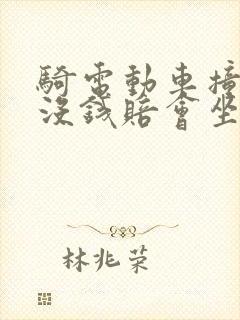 騎電動車撞
沒錢賠會坐
林兆荣